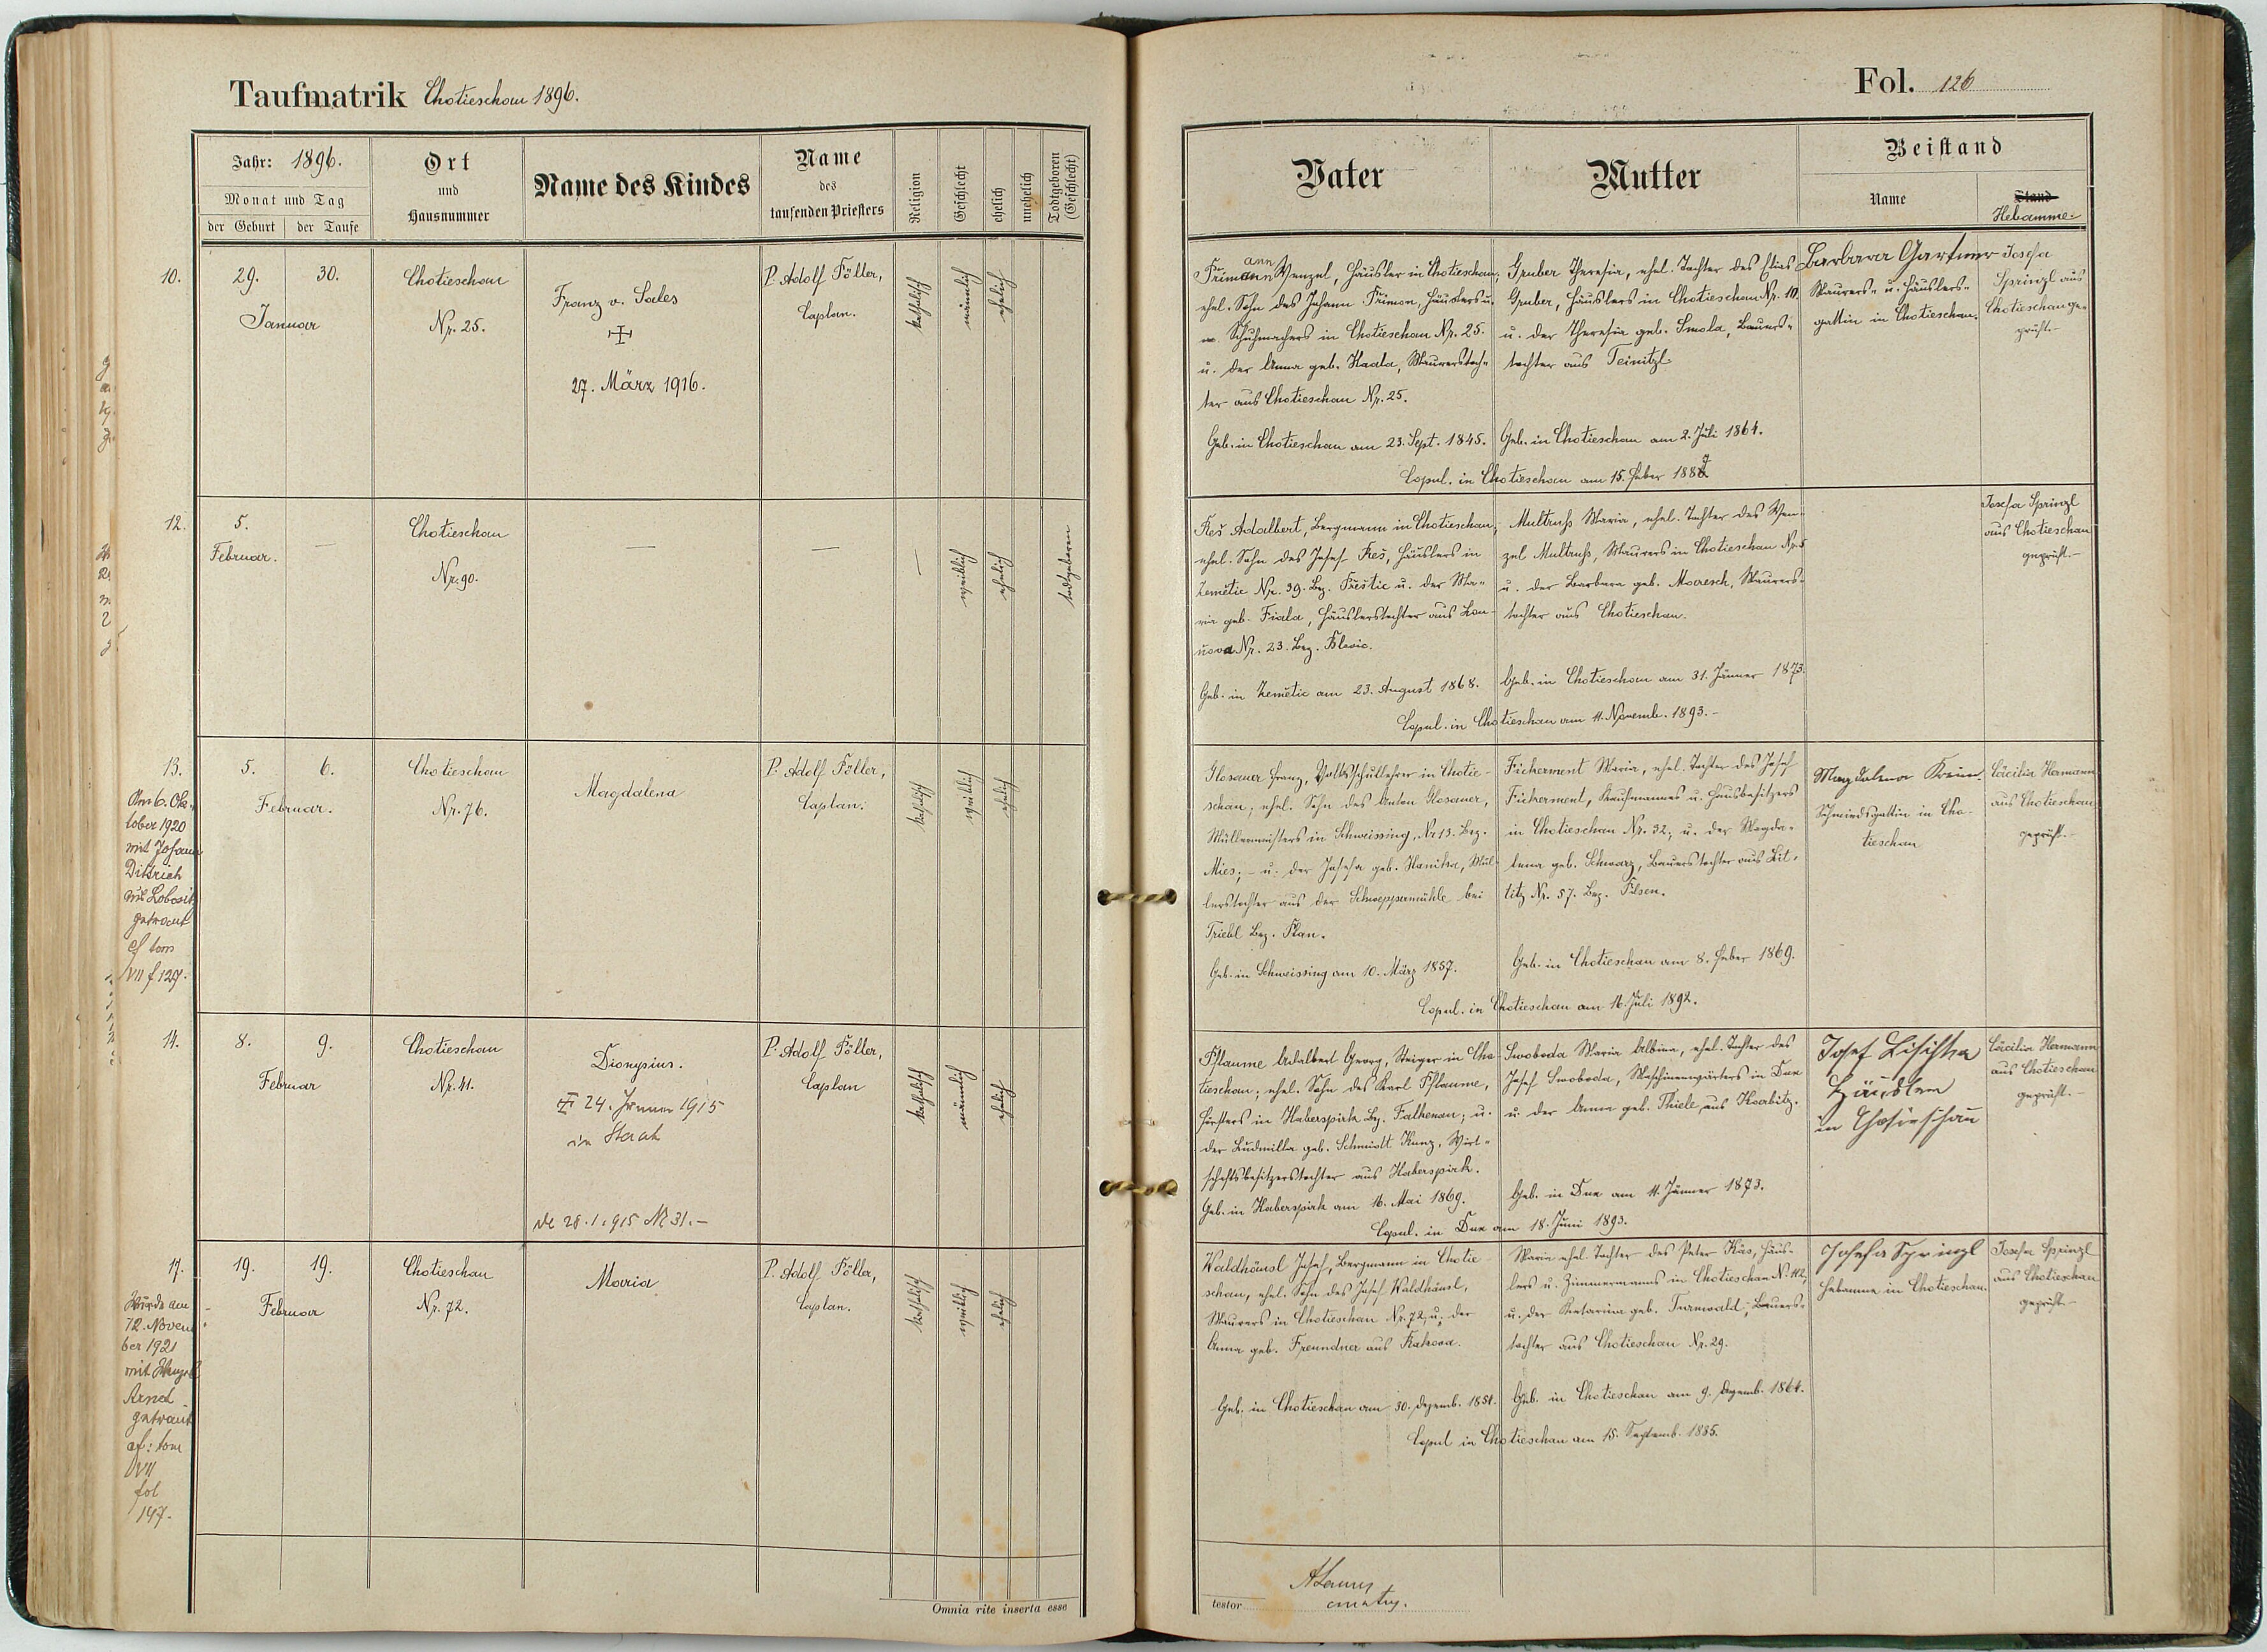 Taufmatrik Chotieschau 1896.
Jahr: 1896.
Monat und Tag
der Geburt
der Taufe
Ort
und
Hausnummer
Name des Kindes
Name
des
taufenden Priesters
Religion
Geschlecht
ehelich
unehelich
Todtgeboren
(Geschlecht)
10.
29.
30.
Januar
Chotieschau
Nr. 25.
Franz v. Sales
27. März 1916.
P. Adolf Föller,
Caplan.
katholisch
männlich
ehelich
12.
5.
Februar.
—
Chotieschau
Nr. 90.
—
—
—
weiblich
ehelich
todtgeboren
13.
Am 6. Ok-
tober 1920
mit Johann
Dittrich
aus Lobositz
getraut
cf tom
VII f 127.
5.
6.
Februar.
Chotieschau
Nr. 76.
Magdalena
P. Adolf Föller,
Caplan.
katholisch
weiblich
ehelich
14.
8.
9.
Februar
Chotieschau
Nr. 41.
Dionysius.
24. Jänner 1915
in Staab
de 28.1.915 N 31.–
P. Adolf Föller,
Caplan
katholisch
männlich
ehelich
17.
Wurde am
12. Novem
ber 1921
mit Wenzel
Arnet
getraut
cf: tom
VII
fol
147.
19.
19.
Februar
Chotieschau
Nr. 72.
Maria
P. Adolf Föller,
Caplan.
katholisch
weiblich
ehelich
Omnia rite inserta esse
Fol. 126
Vater
Mutter
Beistand
Name
Stand
Hebamme
ann
Primann Wenzel, Häusler in Chotieschau,
ehel. Sohn des Johann Primon, Häuslers u.
Schuhmachers in Chotieschau Nr. 25.
u. der Anna geb. Kaala, Maurerstoch-
ter aus Chotieschau Nr. 25.
Geb. in Chotieschau am 23. Sept. 1845.
Gruber Theresia, ehel. Tochter des Elias
Gruber, Häuslers in Chotieschau Nr. 10
u. der Theresia geb. Smola, Bauers-
tochter aus Teinitzl
Geb. in Chotieschau am 2. Juli 1864.
Copul. in Chotieschau am 15. Feber 1887
Barbara Gartner
Maurers- u. Häuslers-
gattin in Chotieschau.
Josefa
Sprinzl aus
Chotieschau ge-
prüft.–
Reš Adalbert, Bergmann in Chotieschau,
ehel. Sohn des Josef Reš, Häuslers in
Zemětic Nr. 39. Bez. Přeštic u. der Ma-
ria geb. Fiala, Häuslerstochter aus
Nr. 23. Bez.
Geb. in Zemětic am 23. August 1868.
Multrusz Maria, ehel. Tochter des Wen-
zel Multrusz, Maurers in Chotieschau Nr. 5
u. der Barbara geb. Maresch, Maurers-
tochter aus Chotieschau.
Geb. in Chotieschau am 31. Jänner 1873.
Copul. in Chotieschau am 11. Novemb. 1893.–
Josefa Sprinzl
aus Chotieschau
geprüft.–
Glosauer Franz, Volksschullehrer in Chotie-
schau; ehel. Sohn des Anton Glosauer,
Müllermeisters in Schweissing, Nr. 13. Bez.
Mies; – u. der Josefa geb. Hanika, Mül-
lerstochter aus der bei
Triebl Bez. Plan.
Geb. in Schweissing am 10. März 1857.
Fickerment Maria, ehel. Tochter des Josef
Fickerment, Kaufmannes u. Hausbesitzers
in Chotieschau Nr. 32, u. der Magda-
lena geb. Schwarz, Bauerstochter aus Lit-
titz Nr. 57. Bez. Pilsen.
Geb. in Chotieschau am 8. Feber 1869.
Copul. in Chotieschau am 16. Juli 1892.
Magdalena
Schmiedsgattin in Cho-
tieschau
Cäcilia Hermann
aus Chotieschau
geprüft.–
Pflaume Adalbert Georg, Steiger in Cho-
tieschau; ehel. Sohn des Karl Pflaume,
Försters in Haberspirk Bez. Falkenau; u.
der Ludmilla geb. Schmidt Kunz, Wirt-
schaftsbesitzerstochter aus Haberspirk.
Geb. in Haberspirk am 16. Mai 1869.
Swoboda Maria Albina, ehel. Tochter des
Josef Swoboda, Maschinenwärters in Dux
u. der Anna geb. Thiele aus Karbitz.
Geb. in Dux am 11. Jänner 1873.
Copul. in Dux am 18. Juni 1893.
Josef Lisischka
Händler
in Chotieschau
Cäcilia Hermann
aus Chotieschau
geprüft.–
Waldhäusl Josef, Bergmann in Chotie-
schau, ehel. Sohn des Josef Waldhäusl,
Maurers in Chotieschau Nr. 72, u. der
Anna geb. Freundner aus Rakova.
Geb. in Chotieschau am 30. Dezemb. 1851.
Maria ehel. Tochter des Peter Käs, Häus-
lers u. Zimmermanns in Chotieschau N. 112,
u. der Katarina geb. Turnwald, Bauers-
tochter aus Chotieschau Nr. 29.
Geb. in Chotieschau am 9. Dezemb. 1864.
Copul in Chotieschau am 15. Septemb. 1885.
Josefa Sprinzl
Hebamme in Chotieschau.
Josefa Sprinzl
aus Chotieschau
geprüft.–
testor